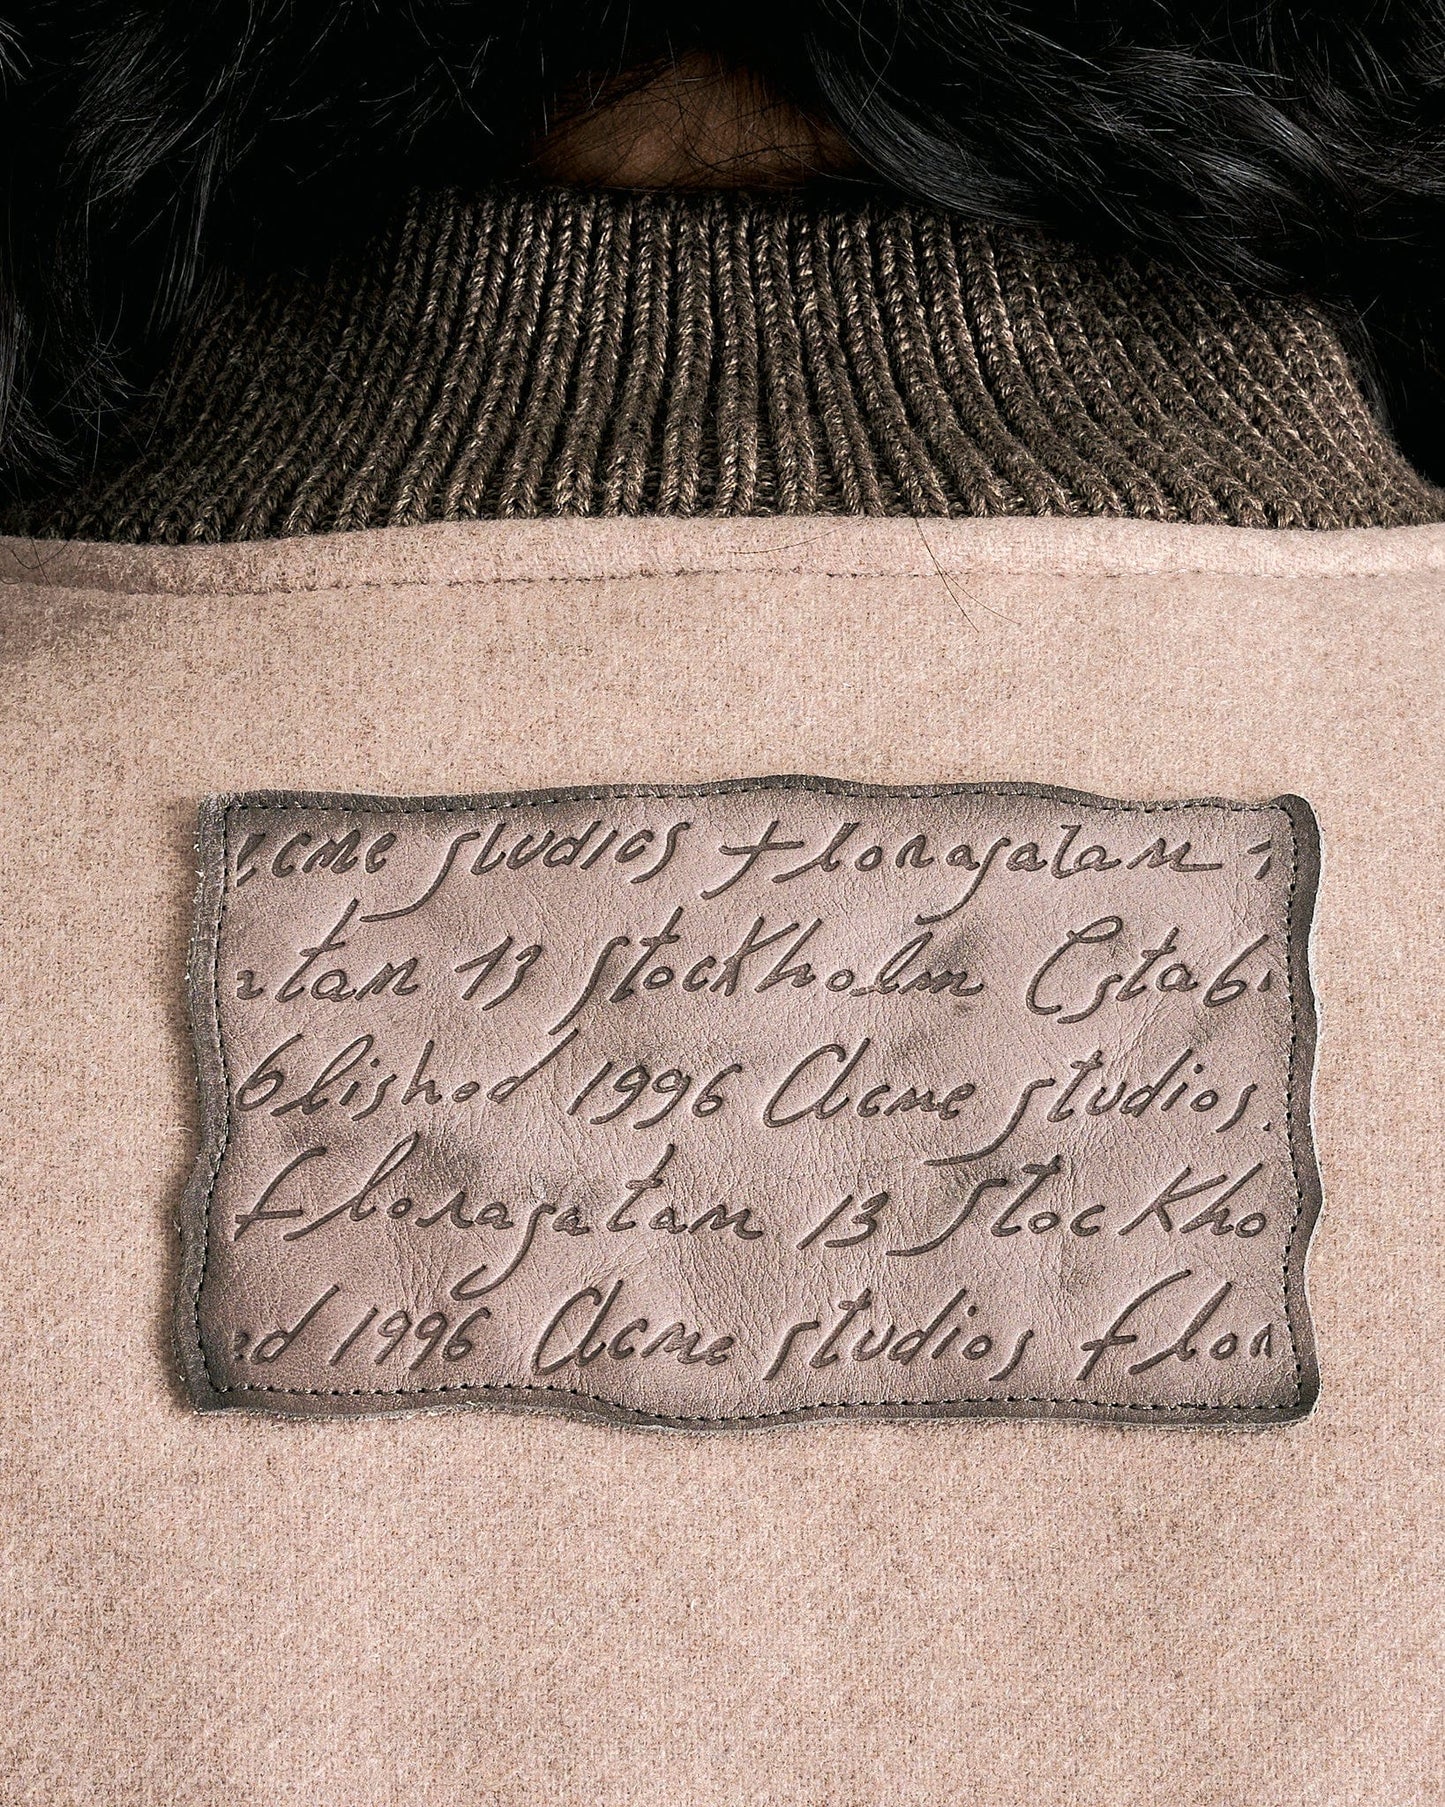 acme studios Floragatan
atan 13 Stockholm Estab
blished 1996 Acme studios.
Floragatan 13 Stockho
ed 1996 Acme studios Flor